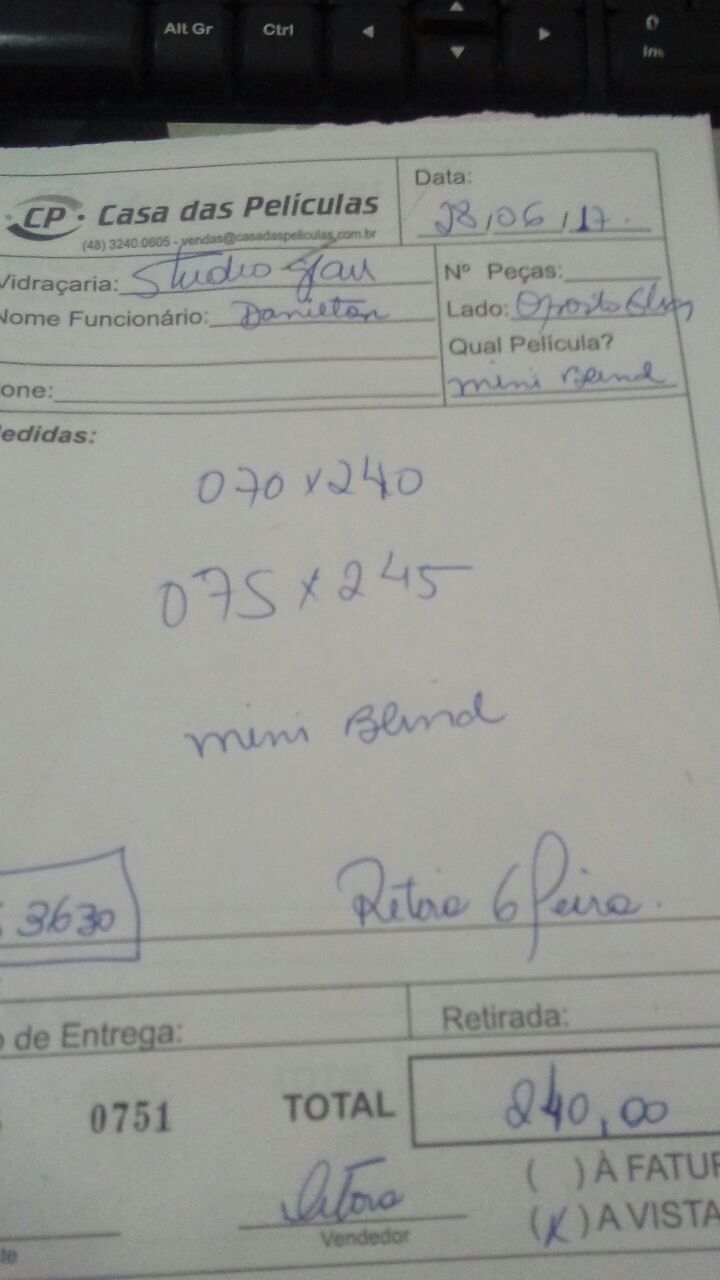 Alt Gr
Ctrl
0
Ins
CP Casa das Películas
(48) 3240.0605 - vendas@casadaspeliculas.com.br
Data:
28/06/17.
Vidraçaria: Studio
Nome Funcionário:
one:
Nº Peças:
Lado: Oposto
Qual Película?
mini Blind
edidas:
070 x 240
075 x 245
mini Blind
3630
Retira 6 feira.
o de Entrega:
Retirada:
0751
TOTAL
240,00
( ) À FATUR
(X) A VISTA
Vendedor
te